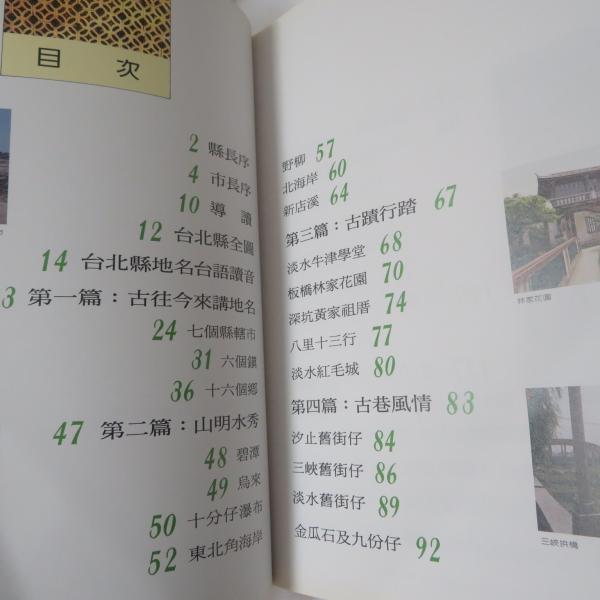 目次
2 縣長序
4 市長序
10 導讀
12 台北縣全圖
14 台北縣地名台語讀音
3 第一篇：古往今來講地名
24 七個縣轄市
31 六個鎮
36 十六個鄉
47 第二篇：山明水秀
48 碧潭
49 烏來
50 十分仔瀑布
52 東北角海岸
野柳 57
北海岸 60
新店溪 64
第三篇：古蹟行踏 67
淡水牛津學堂 68
板橋林家花園 70
深坑黃家祖厝 74
八里十三行 77
淡水紅毛城 80
第四篇：古巷風情 83
汐止舊街仔 84
三峽舊街仔 86
淡水舊街仔 89
金瓜石及九份仔 92
林家花園
三峽拱橋